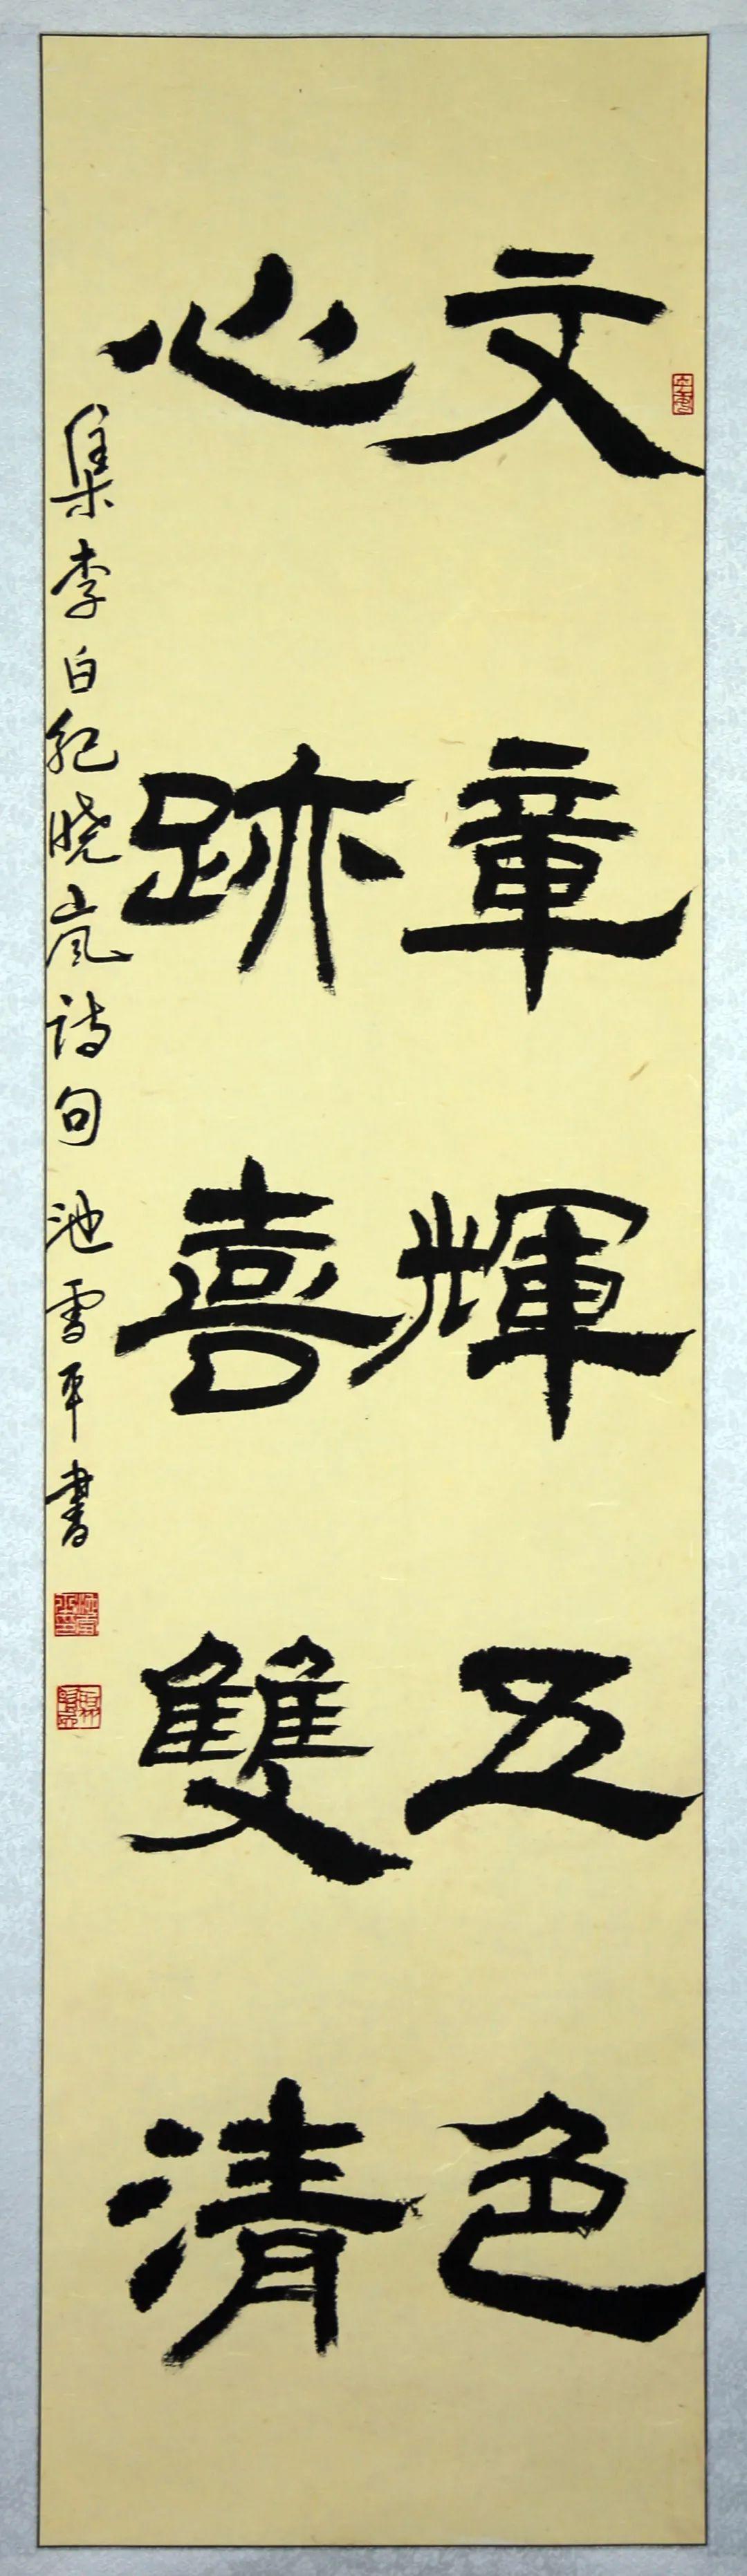 文章輝五色
心跡喜雙清
集李白紀曉嵐詩句 池雪平書